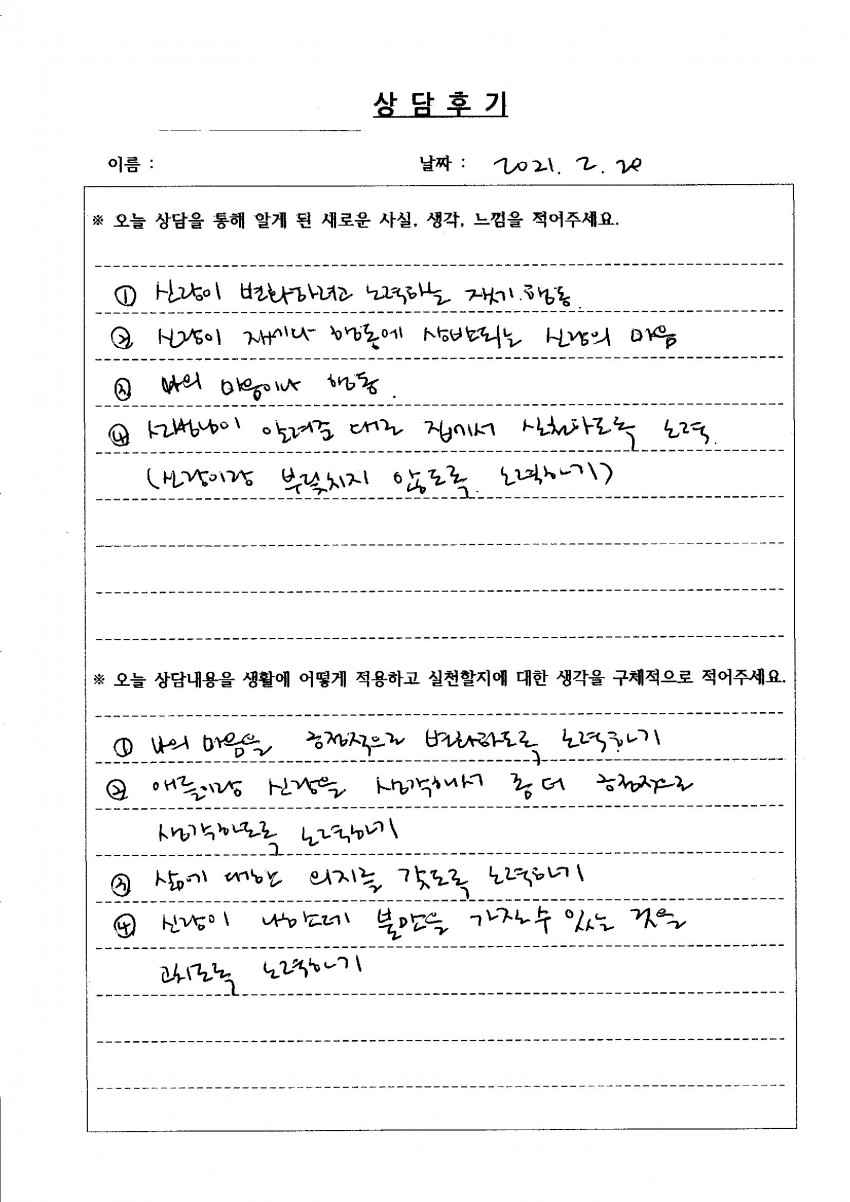 상 담 후 기
이름 : 날짜 : 2021. 2. 20
※ 오늘 상담을 통해 알게 된 새로운 사실, 생각, 느낌을 적어주세요.
① 신랑이 변화하려고 노력하는 행동
② 신랑이 행동에 상반되는 신랑의 마음
③ 나의 마음이나 행동.
④ 알려준 대로 집에서 실천하도록 노력.
(신랑이랑 부딪치지 않도록 노력하기)
※ 오늘 상담내용을 생활에 어떻게 적용하고 실천할지에 대한 생각을 구체적으로 적어주세요.
① 나의 마음을 긍정적으로 변화하도록 노력하기
② 애들이랑 신랑을 생각해서 좀 더 긍정적으로
생각하도록 노력하기
③ 삶에 대한 의지를 갖도록 노력하기
④ 신랑이 나한테 불만을 가질 수 있는 것을
고치도록 노력하기